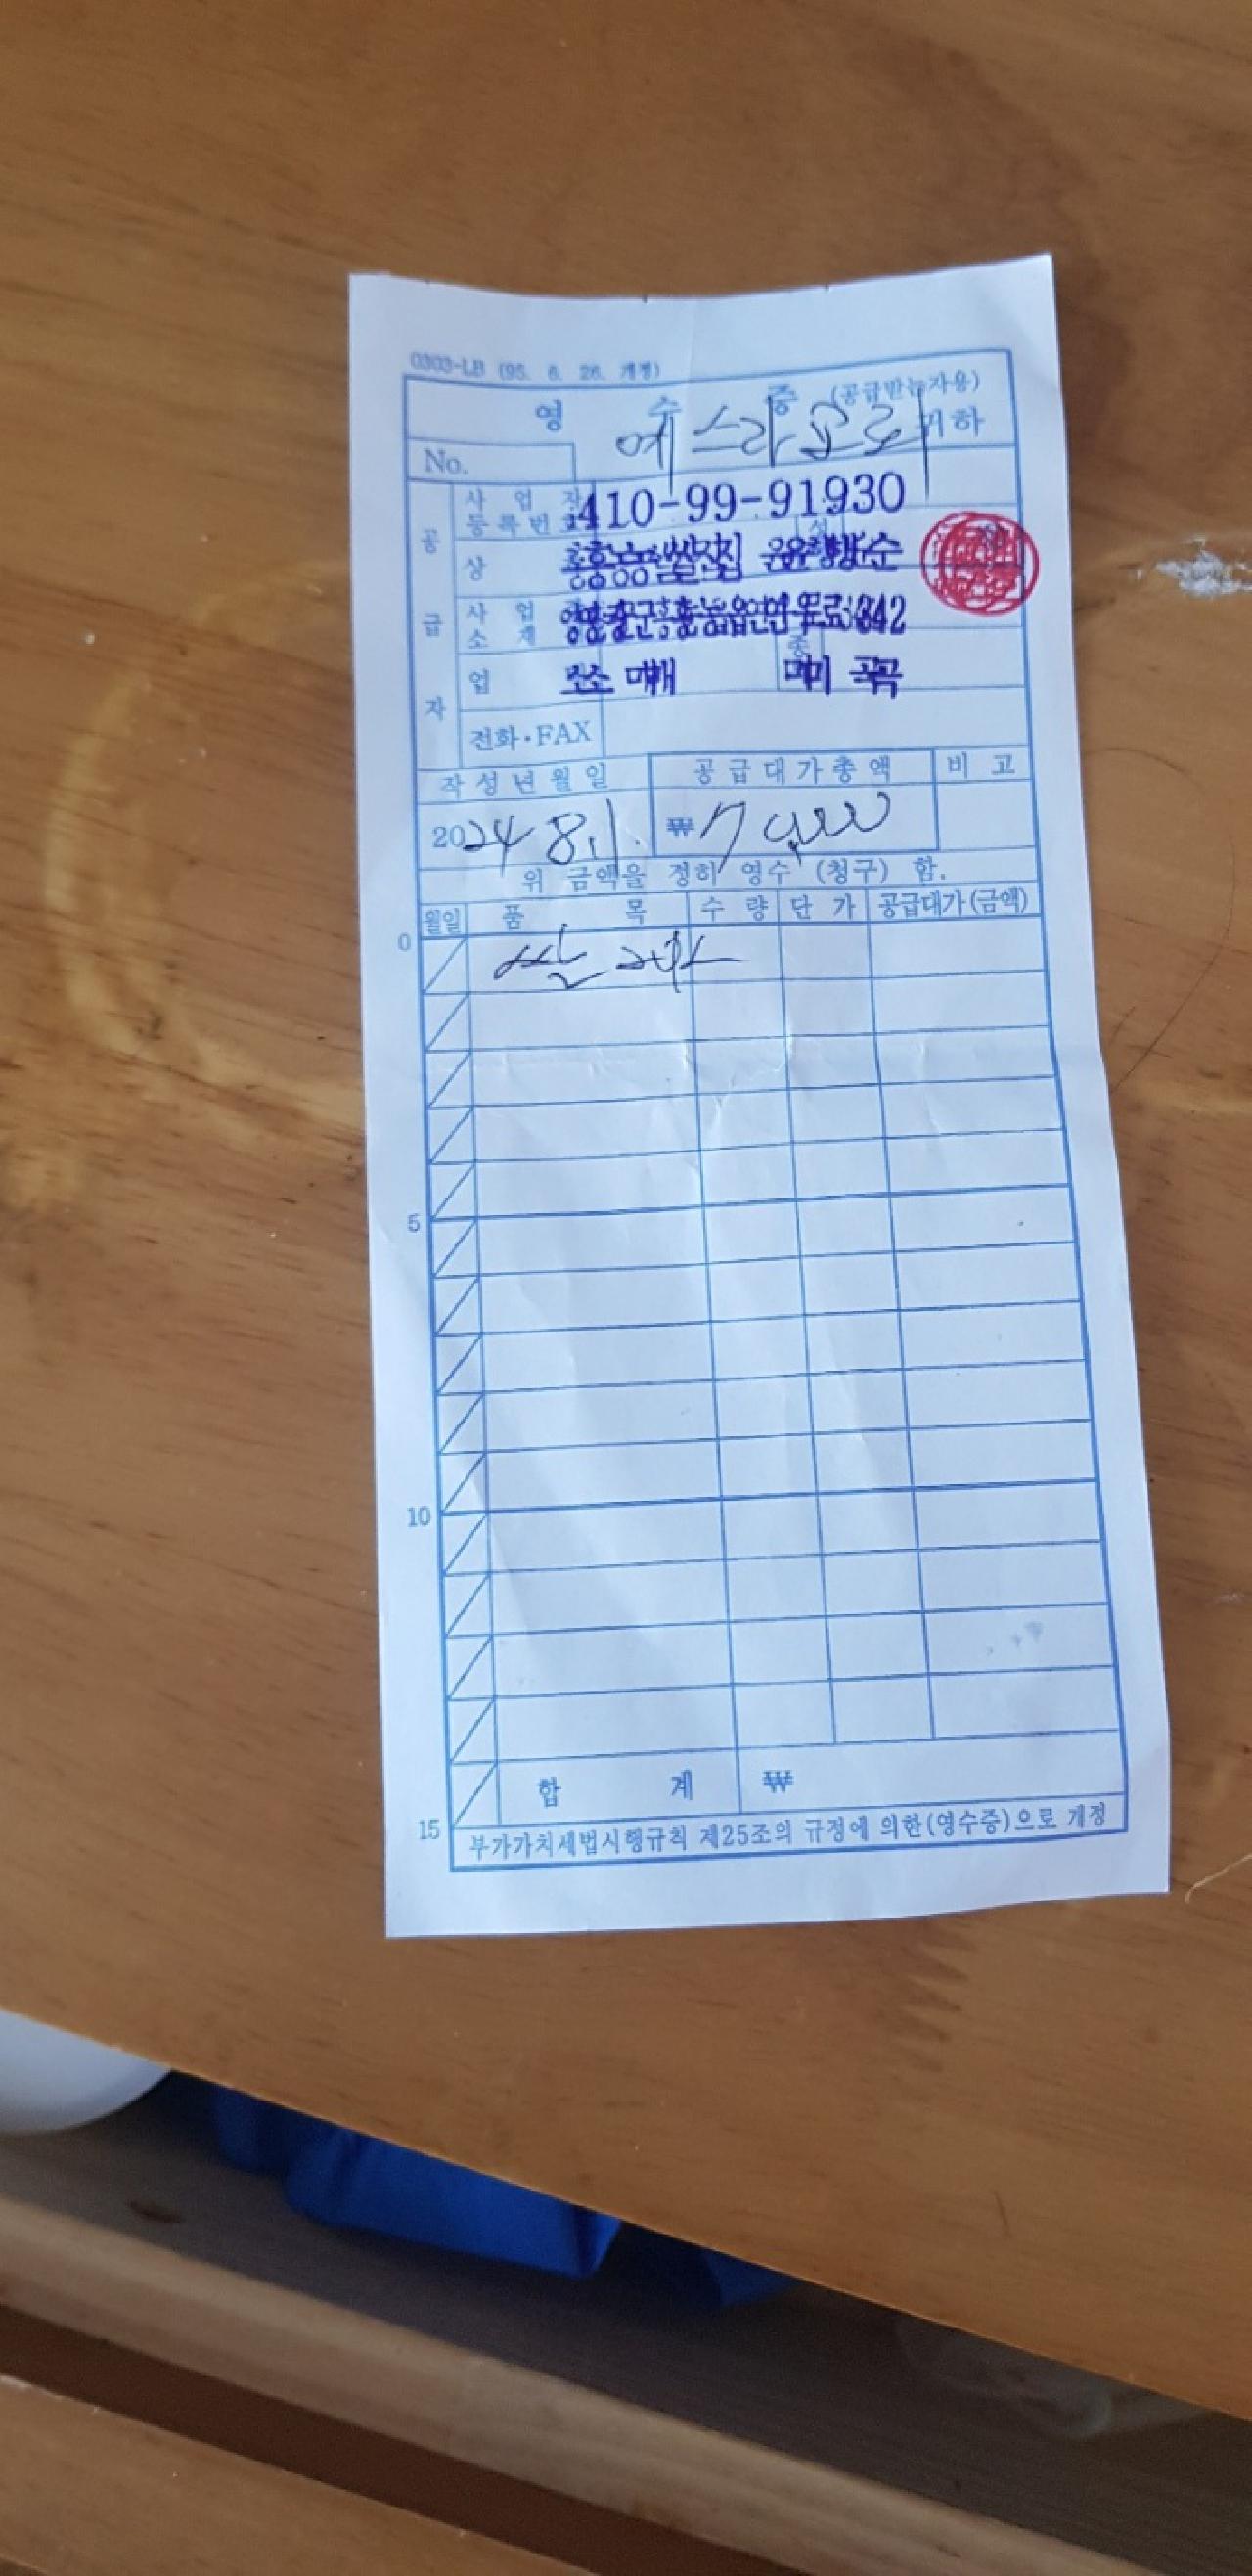 0303-LB (95. 6. 26. 개정)
영 수 증 (공급받는자용)
No. 에스라 귀하
공급자
사업자등록번호 410-99-91930
상 홍농쌀집
사업 소재 영광군 홍농읍 342
업 소매 종 미곡
전화·FAX
작성년월일 공급대가총액 비고
2024 8.1. ₩
위 금액을 정히 영수 (청구) 함.
월일 품 목 수 량 단 가 공급대가(금액)
0
쌀
5
10
합 계 ₩
15
부가가치세법시행규칙 제25조의 규정에 의한(영수증)으로 개정